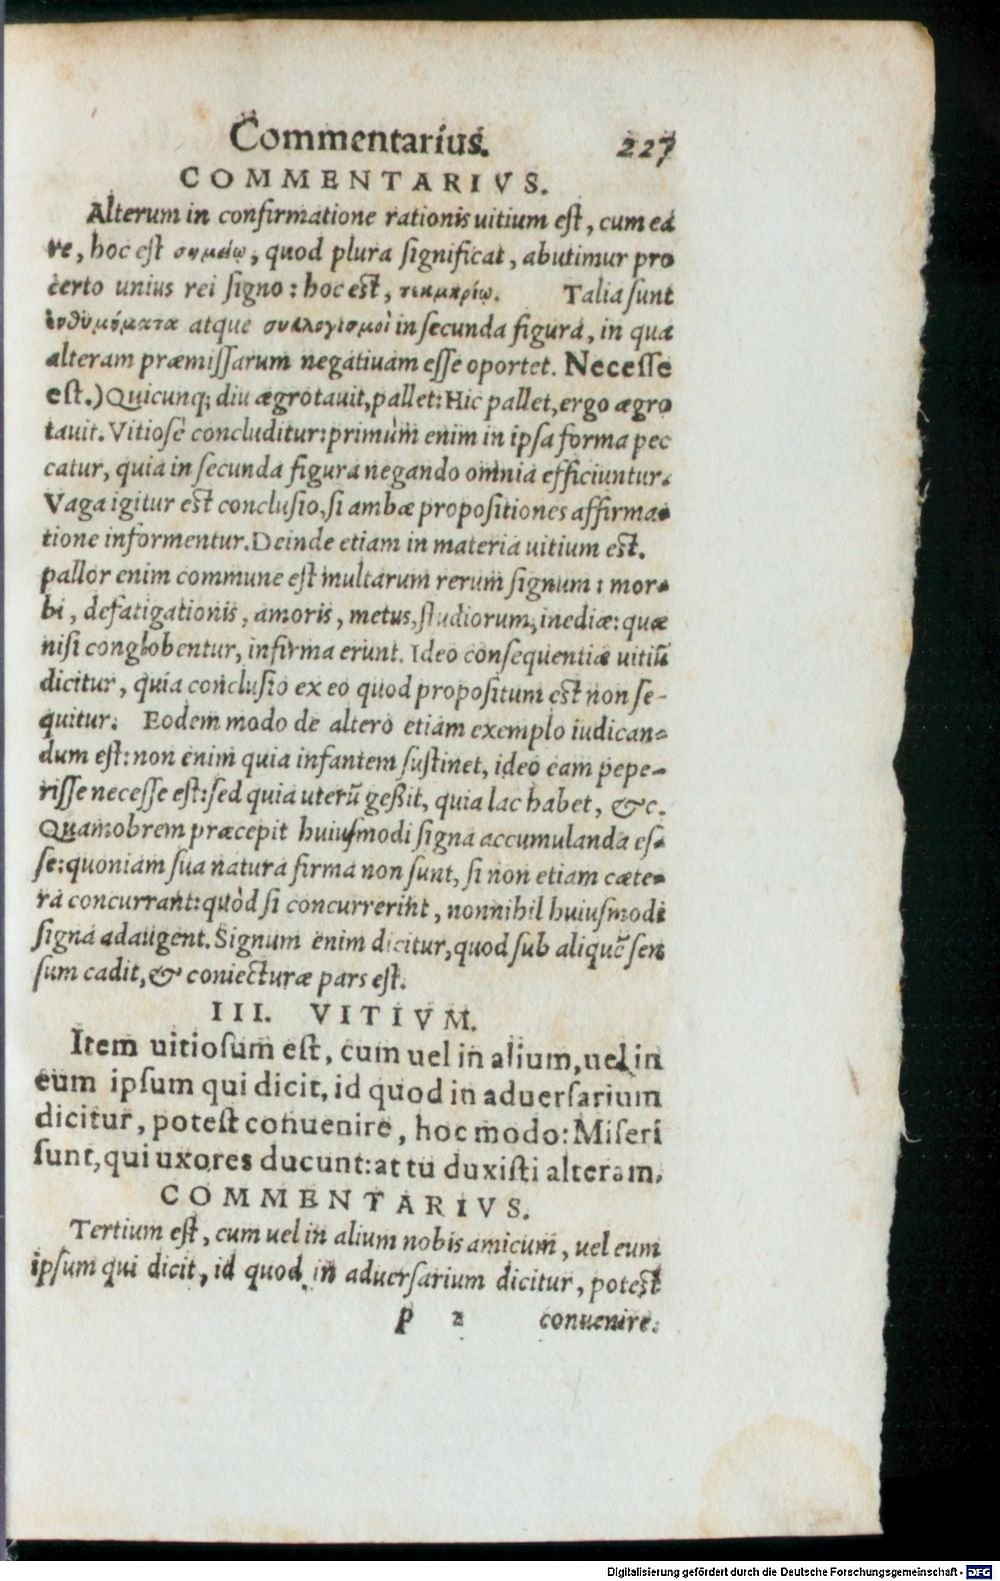 Commentarius. 227
COMMENTARIVS.
Alterum in confirmatione rationis uitium eſt, cum ea
re, hoc eſt σημείῳ, quod plura ſignificat, abutimur pro
certo unius rei ſigno: hoc eſt, τεκμηρίῳ. Talia ſunt
ἐνθυμήματα atque συλλογισμοὶ in ſecunda figura, in qua
alteram præmiſſarum negatiuam eſſe oportet. Neceſſe
eſt.) Quicunq; diu ægrotauit, pallet: Hic pallet, ergo ægro
tauit. Vitioſè concluditur: primùm enim in ipſa forma pec
catur, quia in ſecunda figura negando omnia efficiuntur.
Vaga igitur eſt concluſio, ſi ambæ propoſitiones affirma-
tione informentur. Deinde etiam in materia uitium eſt.
pallor enim commune eſt multarum rerum ſignum: mor-
bi, defatigationis, amoris, metus, ſtudiorum, inediæ: quæ
niſi conglobentur, infirma erunt. Ideo conſequentiæ uitiū
dicitur, quia concluſio ex eo quod propoſitum eſt non ſe-
quitur. Eodem modo de altero etiam exemplo iudican-
dum eſt: non enim quia infantem ſuſtinet, ideo eam pepe-
riſſe neceſſe eſt: ſed quia uterū geßit, quia lac habet, &c.
Quamobrem præcepit huiuſmodi ſigna accumulanda eſ-
ſe: quoniam ſua natura firma non ſunt, ſi non etiam cæte-
ra concurrant: quòd ſi concurrerint, nonnihil huiuſmodi
ſigna adaugent. Signum enim dicitur, quod ſub aliquē ſen
ſum cadit, & coniecturæ pars eſt.
III. VITIVM.
Item uitioſum eſt, cum uel in alium, uel in
eum ipſum qui dicit, id quod in aduerſarium
dicitur, poteſt conuenire, hoc modo: Miſeri
ſunt, qui uxores ducunt: at tu duxiſti alteram.
COMMENTARIVS.
Tertium eſt, cum uel in alium nobis amicum, uel eum
ipſum qui dicit, id quod in aduerſarium dicitur, poteſt
p 2 conuenire.
Digitalisierung gefördert durch die Deutsche Forschungsgemeinschaft - DFG